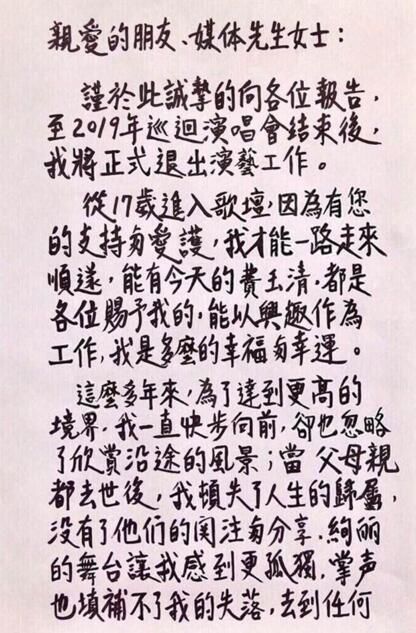 親愛的朋友、媒体先生女士：
謹於此誠摯的向各位報告，
至2019年巡迴演唱會結束後，
我將正式退出演藝工作。
從17歲進入歌壇，因為有您
的支持与愛護，我才能一路走來
順遂，能有今天的費玉清，都是
各位賜予我的，能以興趣作為
工作，我是多麼的幸福与幸運。
這麼多年來，為了達到更高的
境界，我一直快步向前，卻也忽略
了欣賞沿途的風景；當父母親
都去世後，我頓失了人生的歸屬，
没有了他们的関注与分享，絢丽
的舞台讓我感到更孤獨，掌声
也填補不了我的失落，去到任何